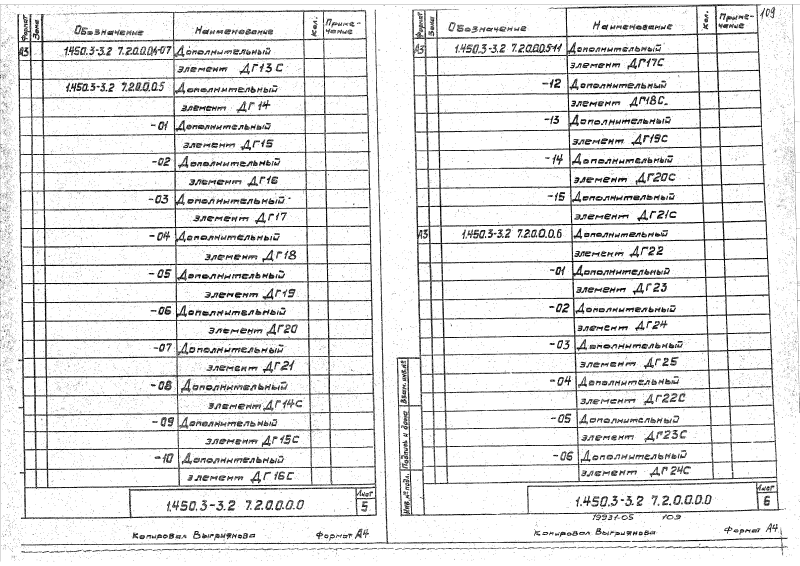 Формат Зона Обозначение Наименование Кол. Приме-
чание
А3 1.450.3-3.2 7.2.0.0.04-07 Дополнительный
элемент ДГ13С
1.450.3-3.2 7.2.0.0.05 Дополнительный
элемент ДГ14
-01 Дополнительный
элемент ДГ15
-02 Дополнительный
элемент ДГ16
-03 Дополнительный
элемент ДГ17
-04 Дополнительный
элемент ДГ18
-05 Дополнительный
элемент ДГ19
-06 Дополнительный
элемент ДГ20
-07 Дополнительный
элемент ДГ21
-08 Дополнительный
элемент ДГ14С
-09 Дополнительный
элемент ДГ15С
-10 Дополнительный
элемент ДГ16С
1.450.3-3.2 7.2.0.0.0.0
Лист
5
Копировал Выгриянова Формат А4
109
Формат Зона Обозначение Наименование Кол. Приме-
чание
А3 1.450.3-3.2 7.2.0.0.05-11 Дополнительный
элемент ДГ17С
-12 Дополнительный
элемент ДГ18С
-13 Дополнительный
элемент ДГ19С
-14 Дополнительный
элемент ДГ20С
-15 Дополнительный
элемент ДГ21С
А3 1.450.3-3.2 7.2.0.0.0.6 Дополнительный
элемент ДГ22
-01 Дополнительный
элемент ДГ23
-02 Дополнительный
элемент ДГ24
-03 Дополнительный
элемент ДГ25
-04 Дополнительный
элемент ДГ22С
-05 Дополнительный
элемент ДГ23С
-06 Дополнительный
элемент ДГ24С
Инв.№ подл. Подпись и дата Взам. инв.№
1.450.3-3.2 7.2.0.0.0.0
Лист
6
19931-05 109
Копировал Выгриянова Формат А4